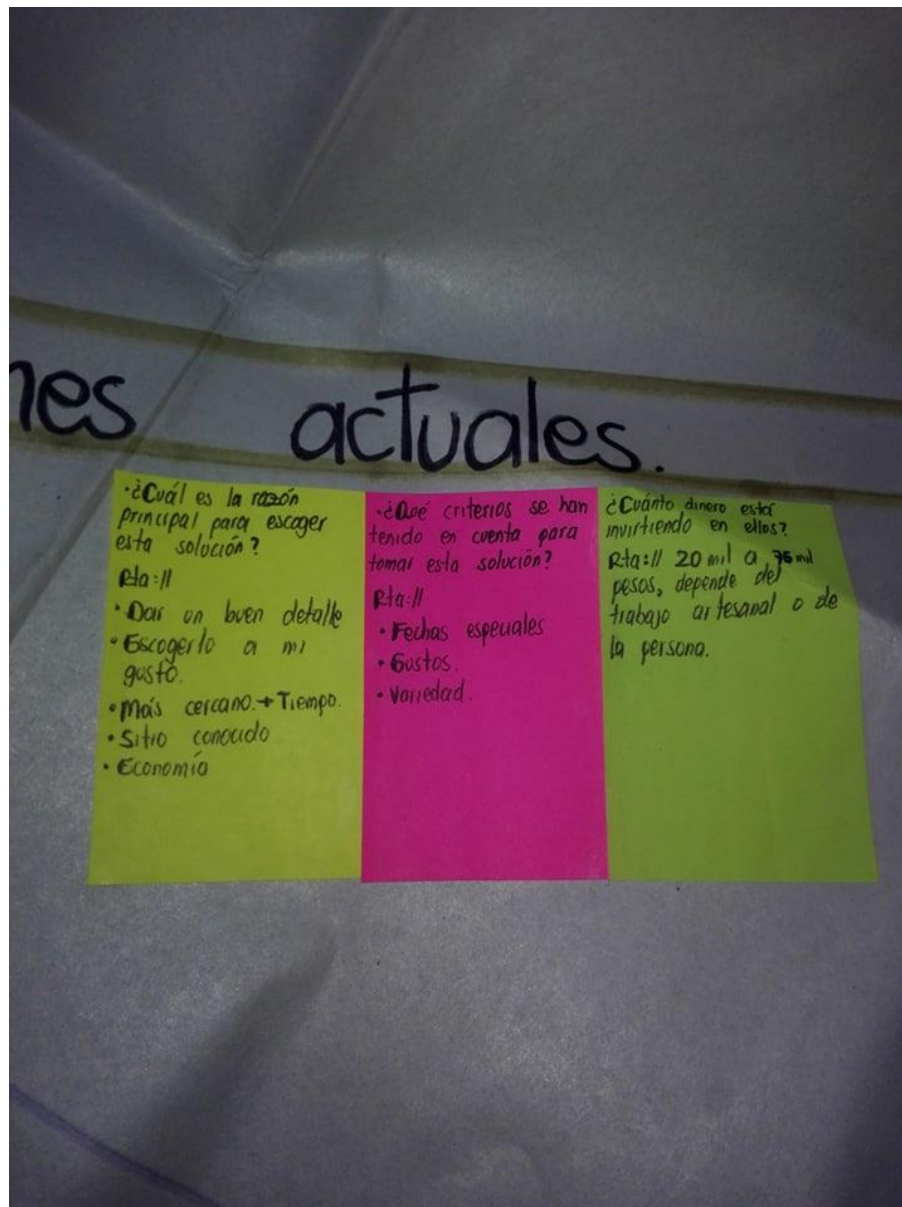 nes actuales.
·¿Cuál es la razón
principal para escoger
esta solución?
Rta://
• Dar un buen detalle
• Escogerlo a mi
gusto.
• Más cercano.→Tiempo.
• Sitio conocido
• Economía
·¿Qué criterios se han
tenido en cuenta para
tomar esta solución?
Rta://
• Fechas especiales
• Gustos.
• Variedad.
¿Cuánto dinero está
invirtiendo en ellos?
Rta:// 20 mil a mil
pesos, depende del
trabajo artesanal o de
la persona.